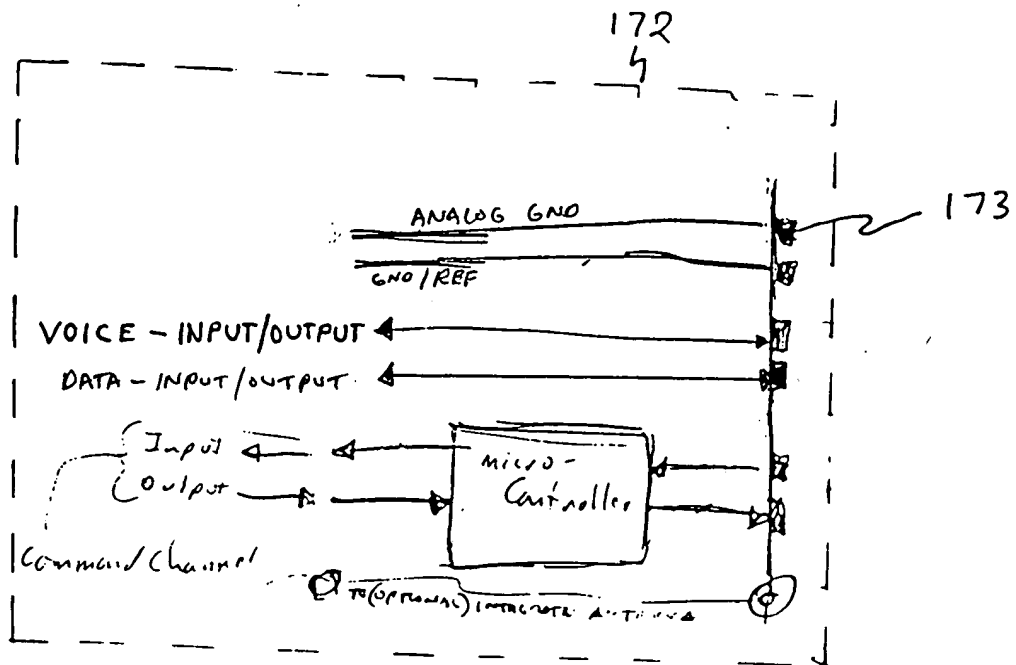 172
173
ANALOG GND
GND/REF
VOICE - INPUT/OUTPUT
DATA - INPUT/OUTPUT
Input
Output
micro-
Controller
Command Channel
TO (OPTIONAL) ANTENNA